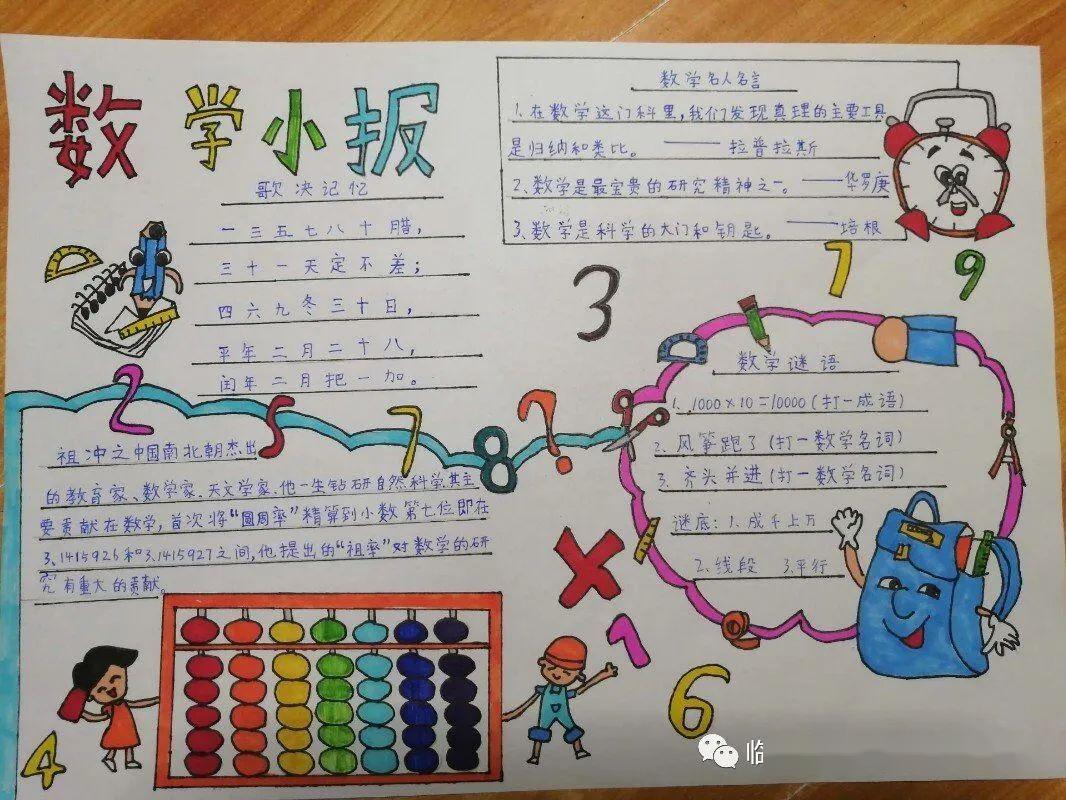 数学小报
歌决记忆
一三五七八十腊，
三十一天定不差；
四六九冬三十日，
平年二月二十八，
闰年二月把一加。
数学名人名言
1、在数学这门科里，我们发现真理的主要工具
是归纳和类比。——拉普拉斯
2、数学是最宝贵的研究精神之一。——华罗庚
3、数学是科学的大门和钥匙。——培根
3
7
9
2
5
7
8
?
祖冲之中国南北朝杰出
的教育家、数学家、天文学家、他一生钻研自然科学其主
要贡献在数学，首次将“圆周率”精算到小数第七位即在
3.1415926和3.1415927之间，他提出的“祖率”对数学的研
究有重大的贡献。
数学谜语
1、1000×10=10000(打一成语)
2、风筝跑了(打一数学名词)
3、齐头并进(打一数学名词)
谜底：1、成千上万
2、线段 3、平行
×
1
6
4
临